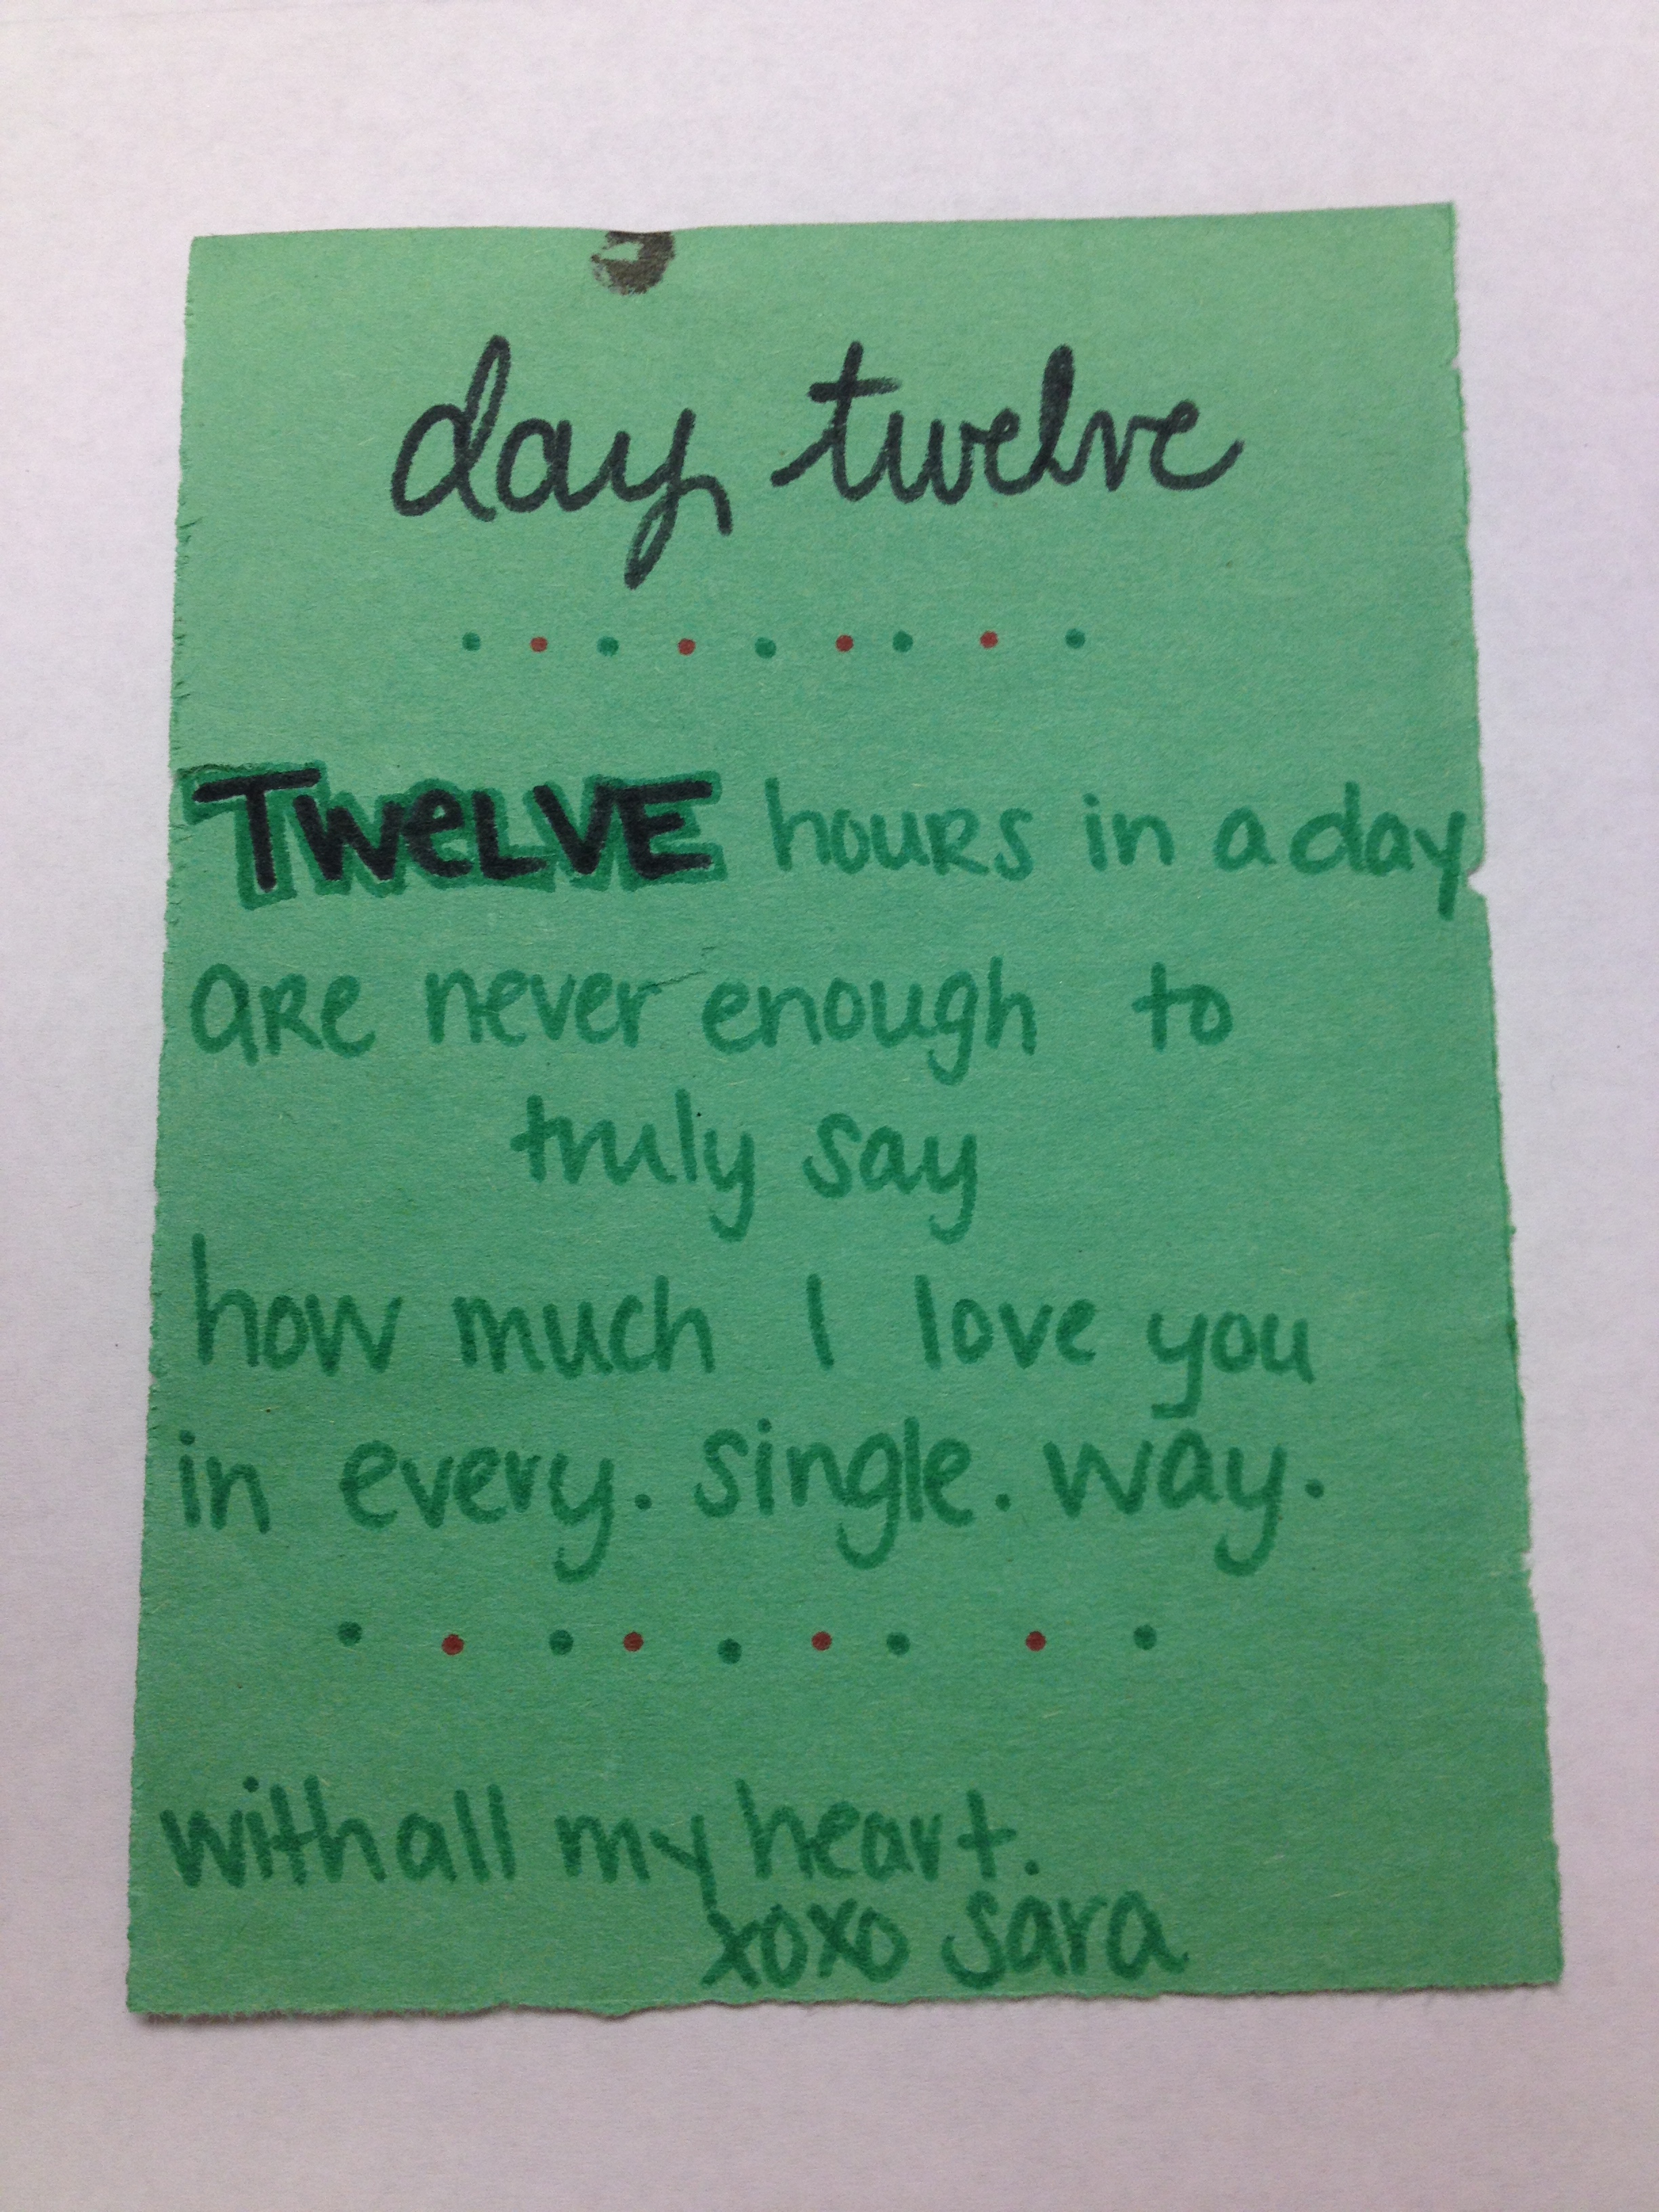 day twelve
TWeLVE hours in a day
are never enough to
truly say
how much I love you
in every. single. way.
with all my heart.
xoxo sara